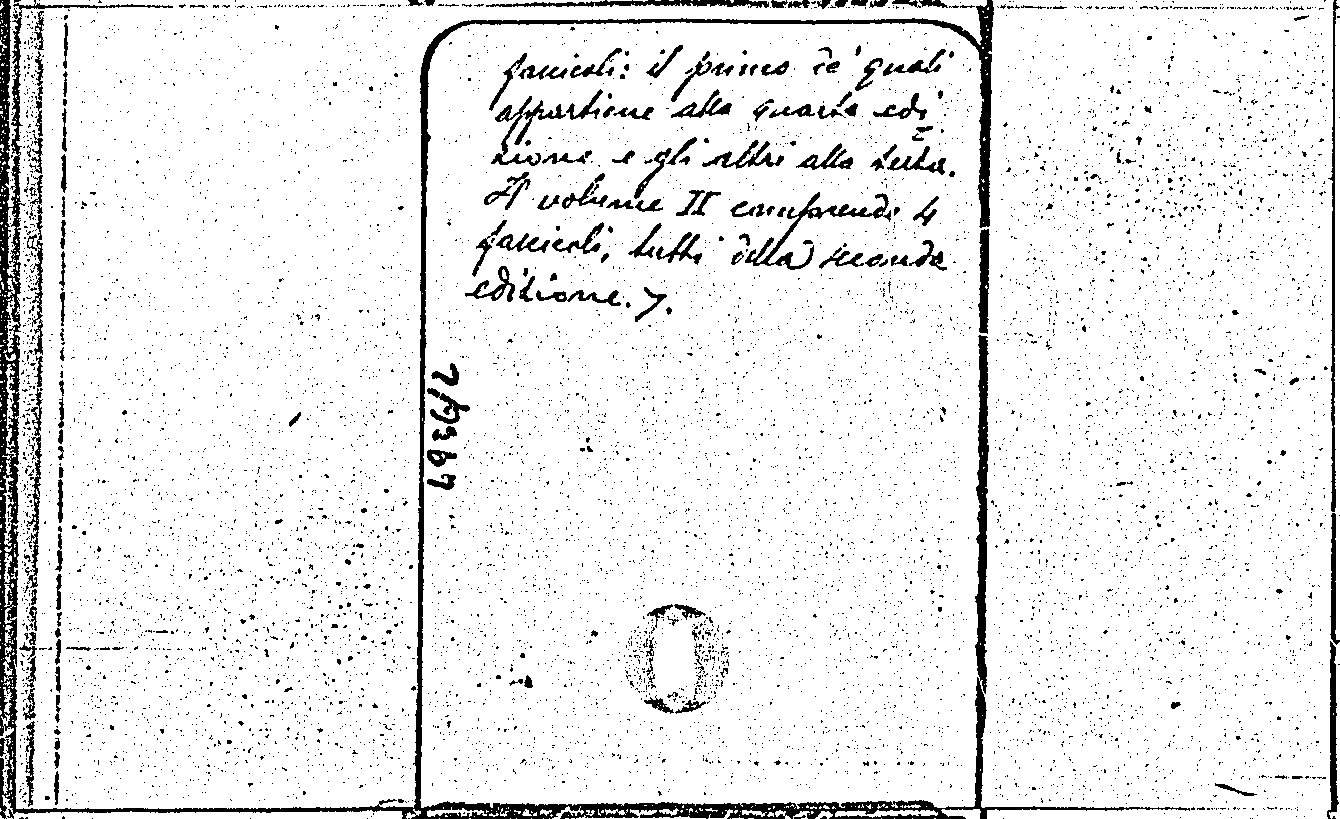 fascicoli: il primo de' quali
appartiene alla quarta edi
zione e gli altri alla terza.
Il volume II comprende 4
fascicoli, tutti della seconda
edizione. 7.
4936/2